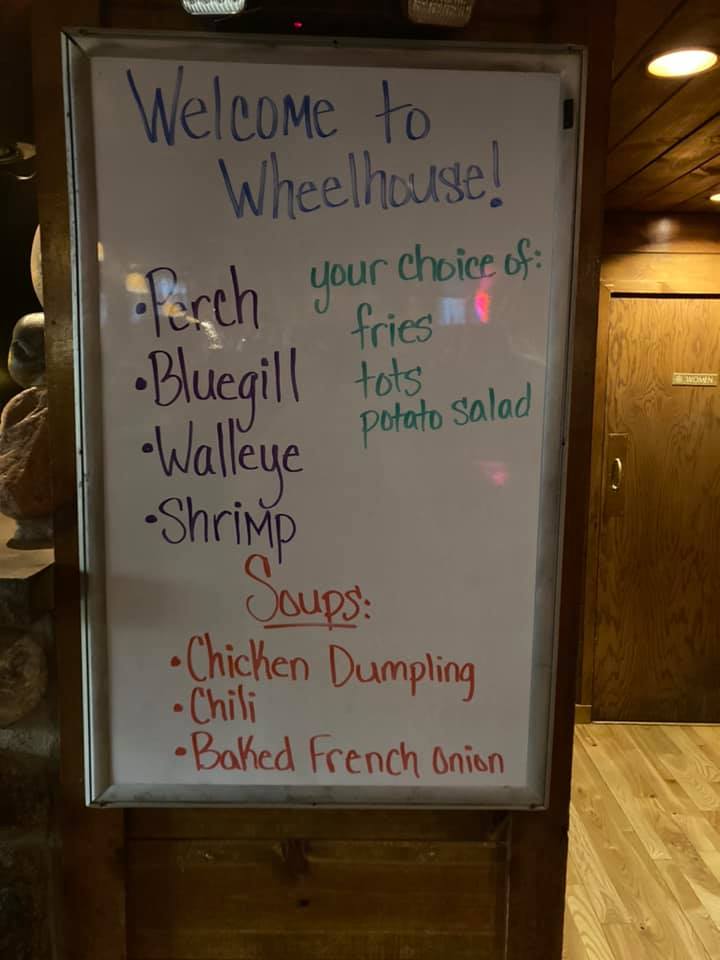 Welcome to
Wheelhouse!
•Perch
•Bluegill
•Walleye
•Shrimp
your choice of:
fries
tots
potato salad
Soups:
•Chicken Dumpling
•Chili
•Baked French Onion
WOMEN